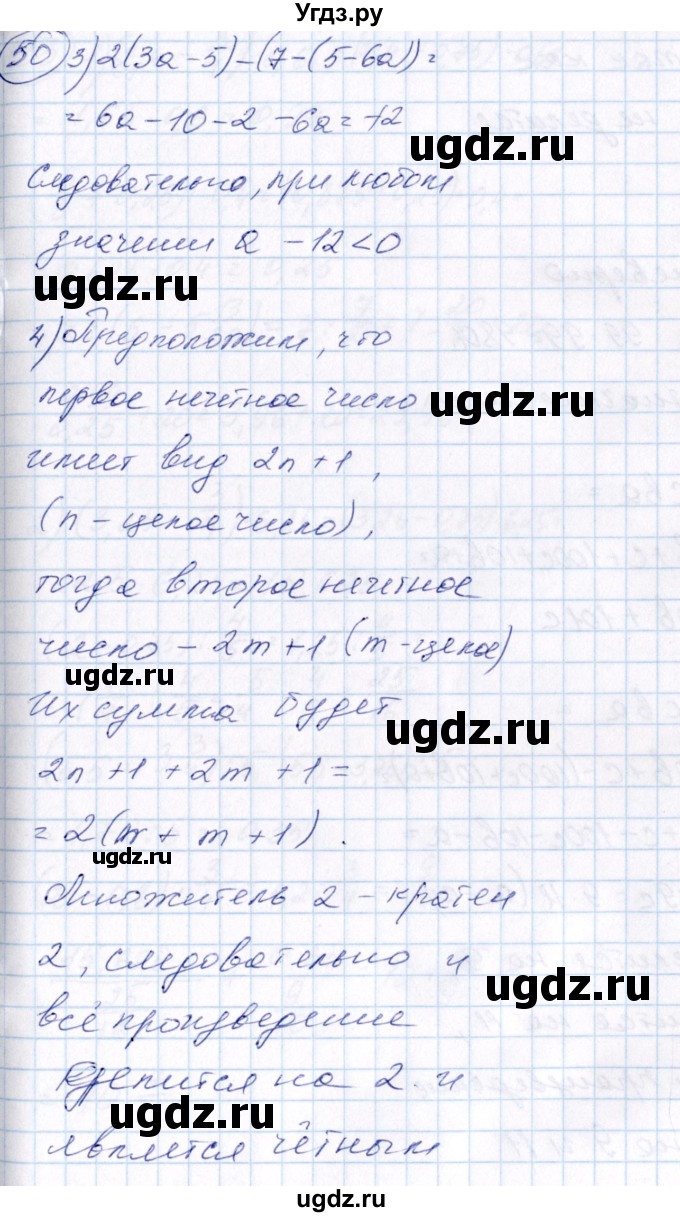 Угдз.ру
50 3) 2(3a-5)-(7-(5-6a))=
= 6a-10-2-6a=-12
ugdz.ru
Следовательно, при любом
значении a -12<0
ugdz.ru
4) Предположим, что
первое нечётное число
ugdz.ru
имеет вид 2n+1,
(n - целое число),
тогда второе нечетное
число - 2m+1 (m-целое)
ugdz.ru
Их сумма будет
ugdz.ru
2n+1+2m+1=
= 2(n+m+1).
ugdz.ru
Множитель 2 - кратен
2, следовательно и
ugdz.ru
всё произведение
делится на 2 и
ugdz.ru
является чётным
ugdz.ru